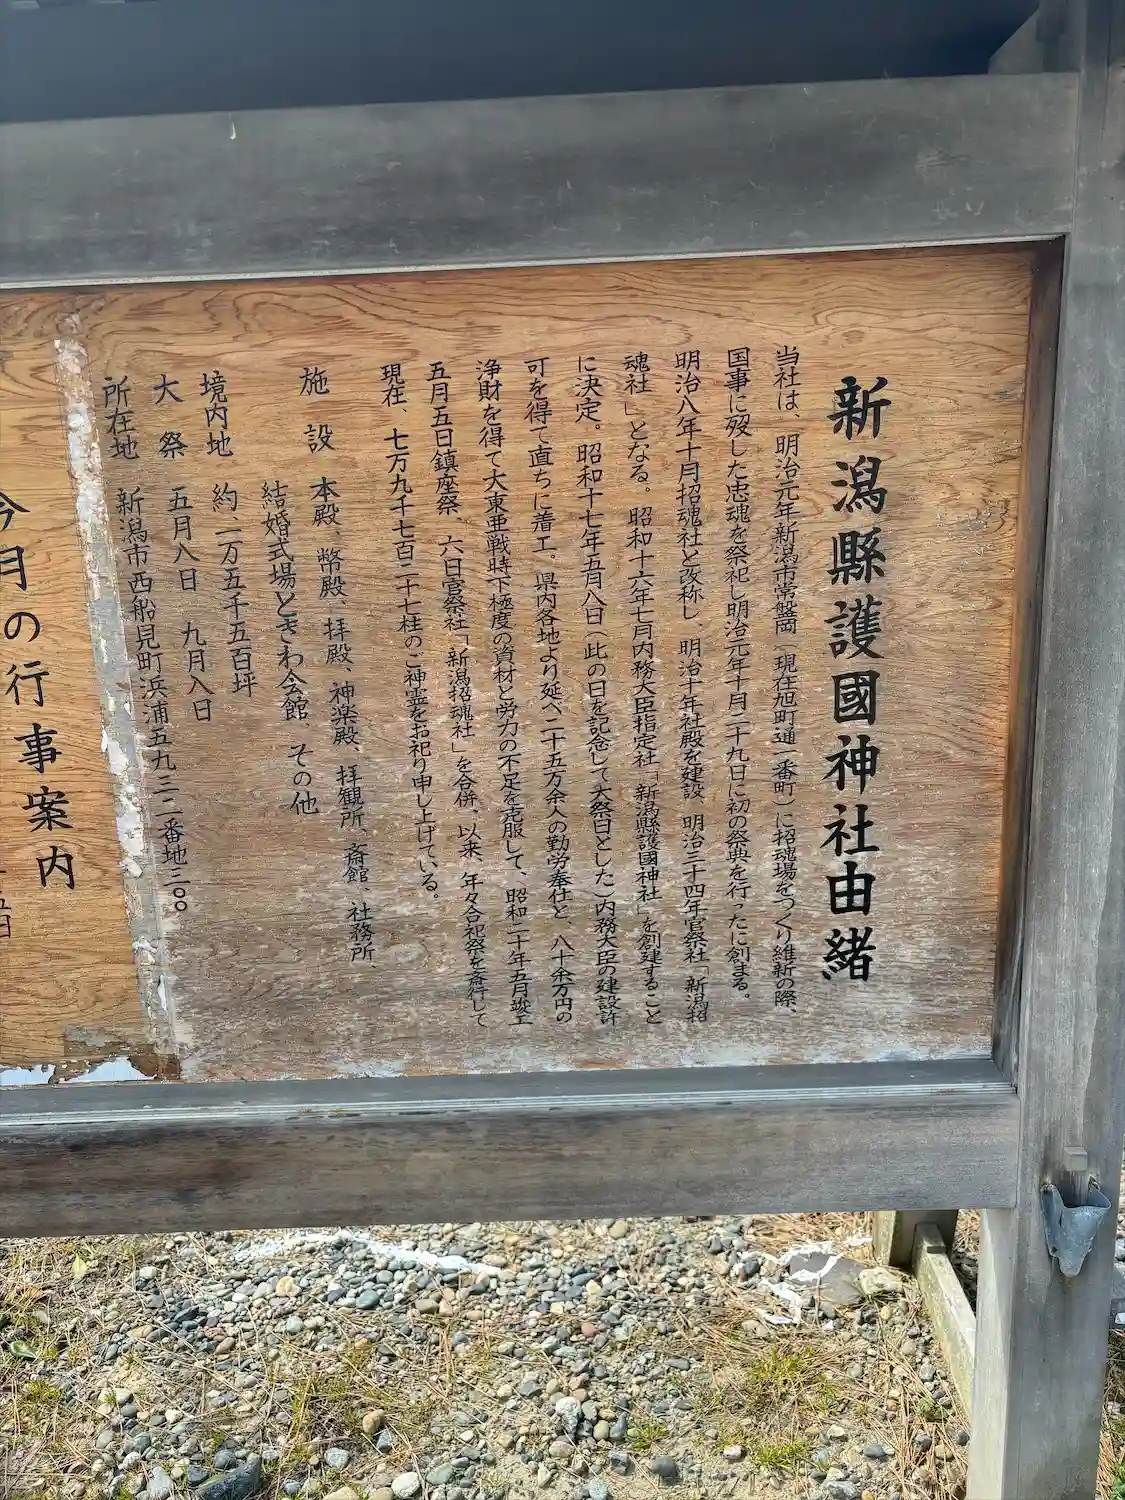 新潟縣護國神社由緒
当社は、明治元年新潟市常盤岡（現在旭町通一番町）に招魂場をつくり維新の際、
国事に歿した忠魂を祭祀し明治元年十月二十九日に初の祭典を行ったに創まる。
明治八年十月招魂社と改称し、明治十年社殿を建設、明治三十四年官祭社「新潟招
魂社」となる。昭和十六年七月内務大臣指定社「新潟縣護國神社」を創建すること
に決定。昭和十七年五月八日（此の日を記念して大祭日とした）内務大臣の建設許
可を得て直ちに着工、県内各地より延べ二十五万余人の勤労奉仕と、八十余万円の
浄財を得て大東亜戦時下極度の資材と労力の不足を克服して、昭和二十年五月竣工
五月五日鎮座祭、六日官祭社「新潟招魂社」を合併、以来、年々合祀祭を斎行して
現在、七万九千七百二十七柱のご神霊をお祀り申し上げている。
施設 本殿、幣殿、拝殿、神楽殿、拝観所、斎館、社務所、
結婚式場ときわ会館、その他
境内地 約、二万五千五百坪
大祭 五月八日 九月八日
所在地 新潟市西船見町浜浦五九三二番地三〇〇
今月の行事案内